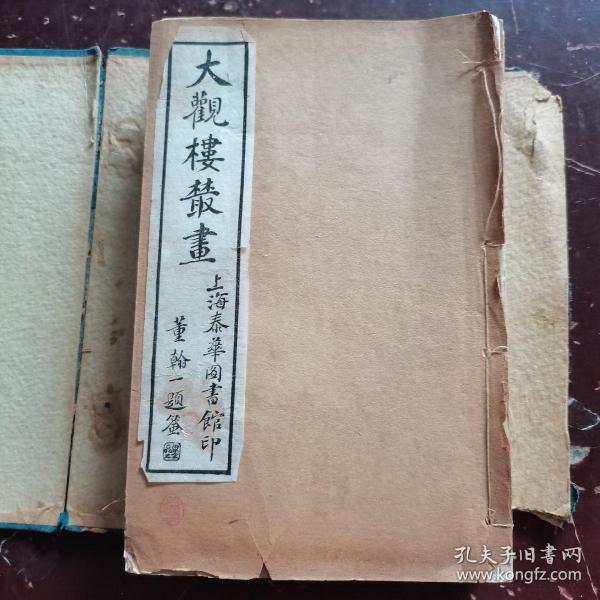 大觀樓叢畫
上海泰華图書館印
董翰一題簽
孔夫子旧書网
www.kongfz.com